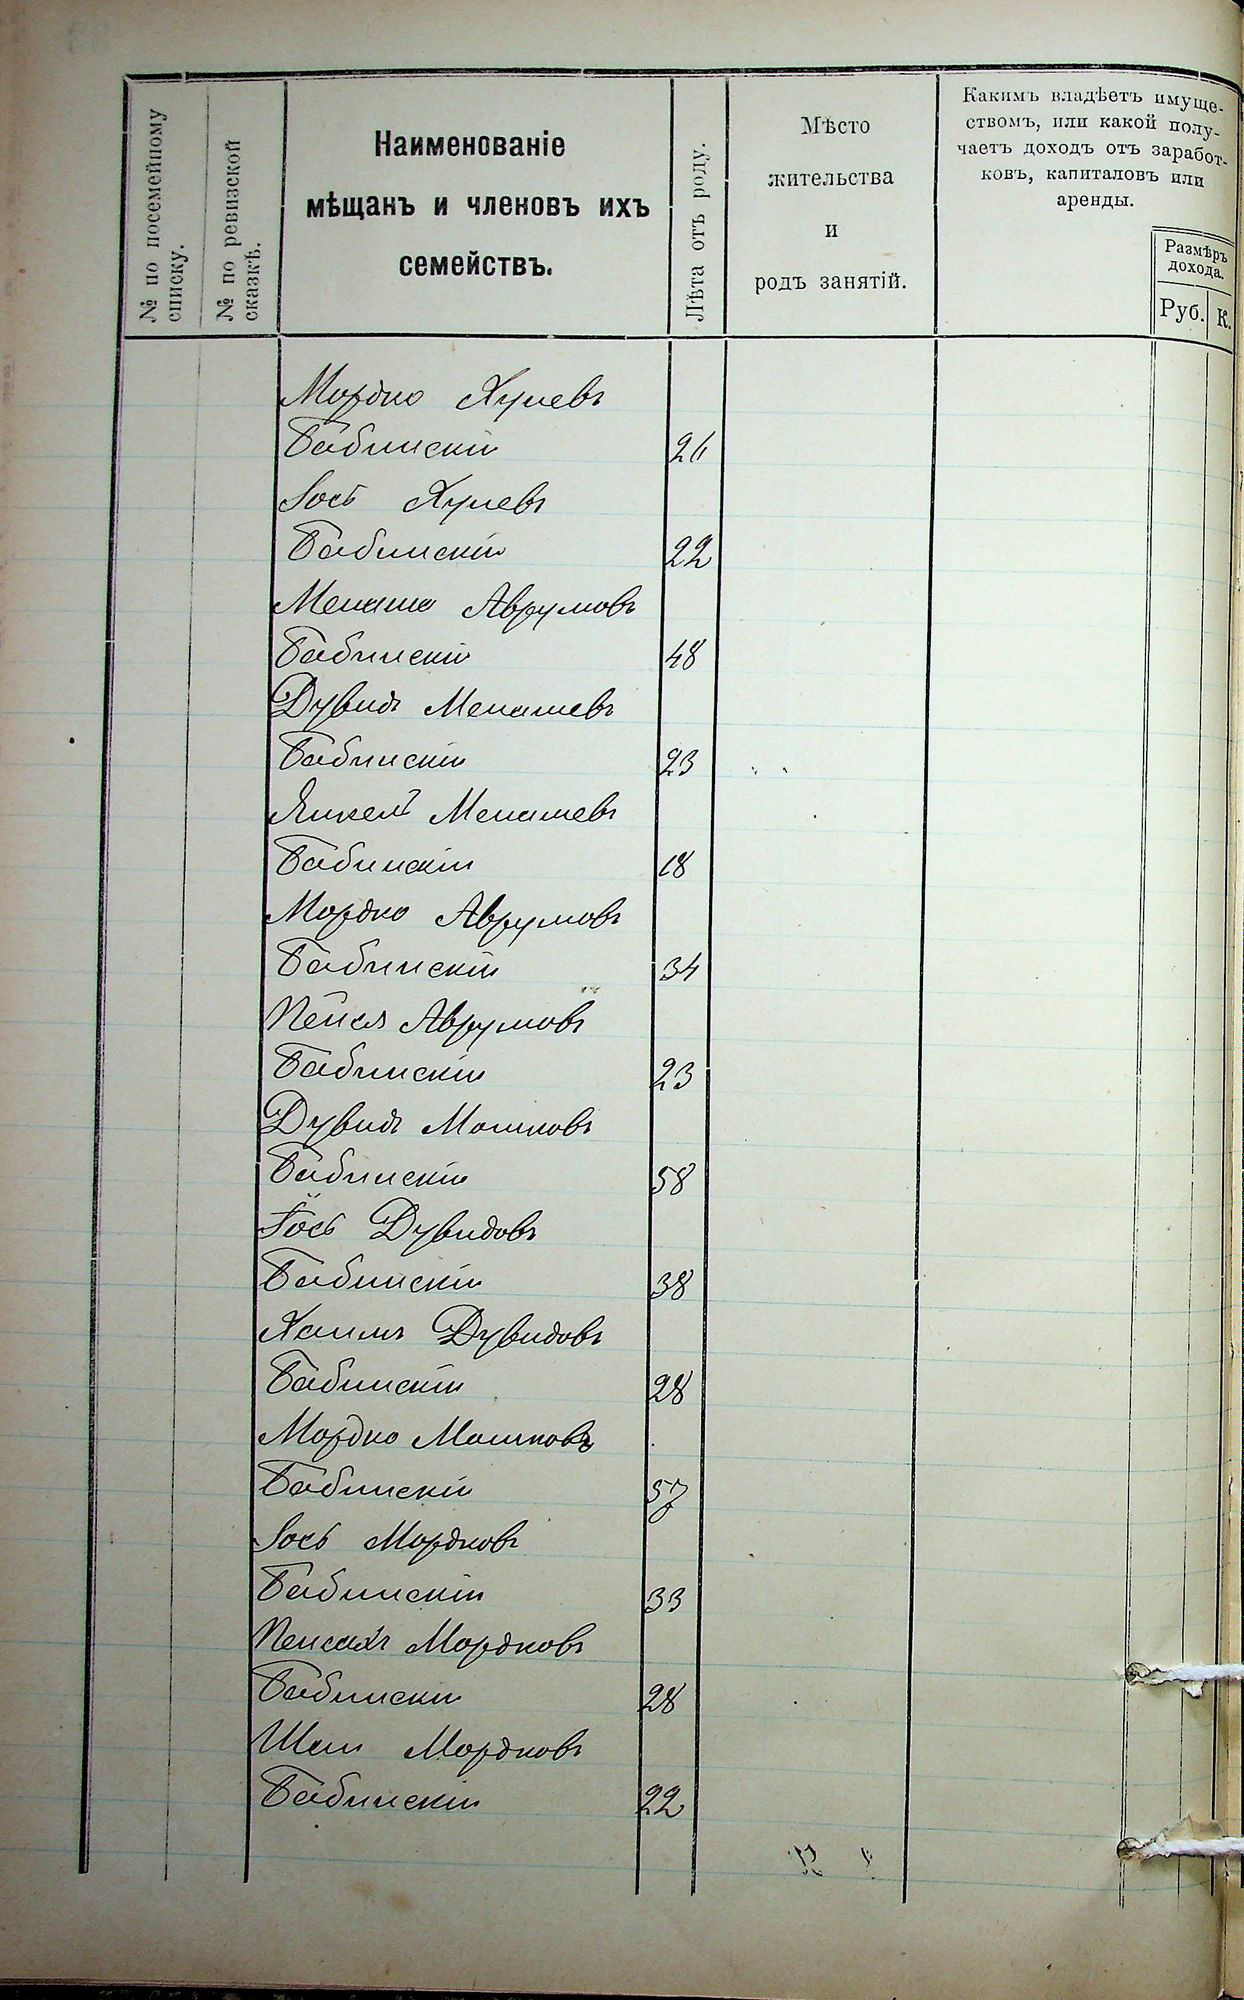 № по посемейному
списку.
№ по ревизской
сказкѣ.
Наименованіе
мѣщанъ и членовъ ихъ
семействъ.
Лѣта отъ роду.
Мѣсто
жительства
и
родъ занятій.
Какимъ владѣетъ имуще-
ствомъ, или какой полу-
чаетъ доходъ отъ заработ-
ковъ, капиталовъ или
аренды.
Размѣръ
дохода.
Руб. К.
Мордко
Бабинскій
Іось
Бабинскій 22
Менаше Аврумовъ
Бабинскій 48
Дувидъ Менашевъ
Бабинскій 23
Янкель Менашевъ
Бабинскій 18
Мордко Аврумовъ
Бабинскій 34
Пейся Аврумовъ
Бабинскій 23
Дувидъ Мошковъ
Бабинскій 58
Іось Дувидовъ
Бабинскій 38
Хаимъ Дувидовъ
Бабинскій 28
Мордко Мошковъ
Бабинскій 57
Іось Мордковъ
Бабинскій 33
Пейсахъ Мордковъ
Бабинскій 28
Мордковъ
Бабинскій 22